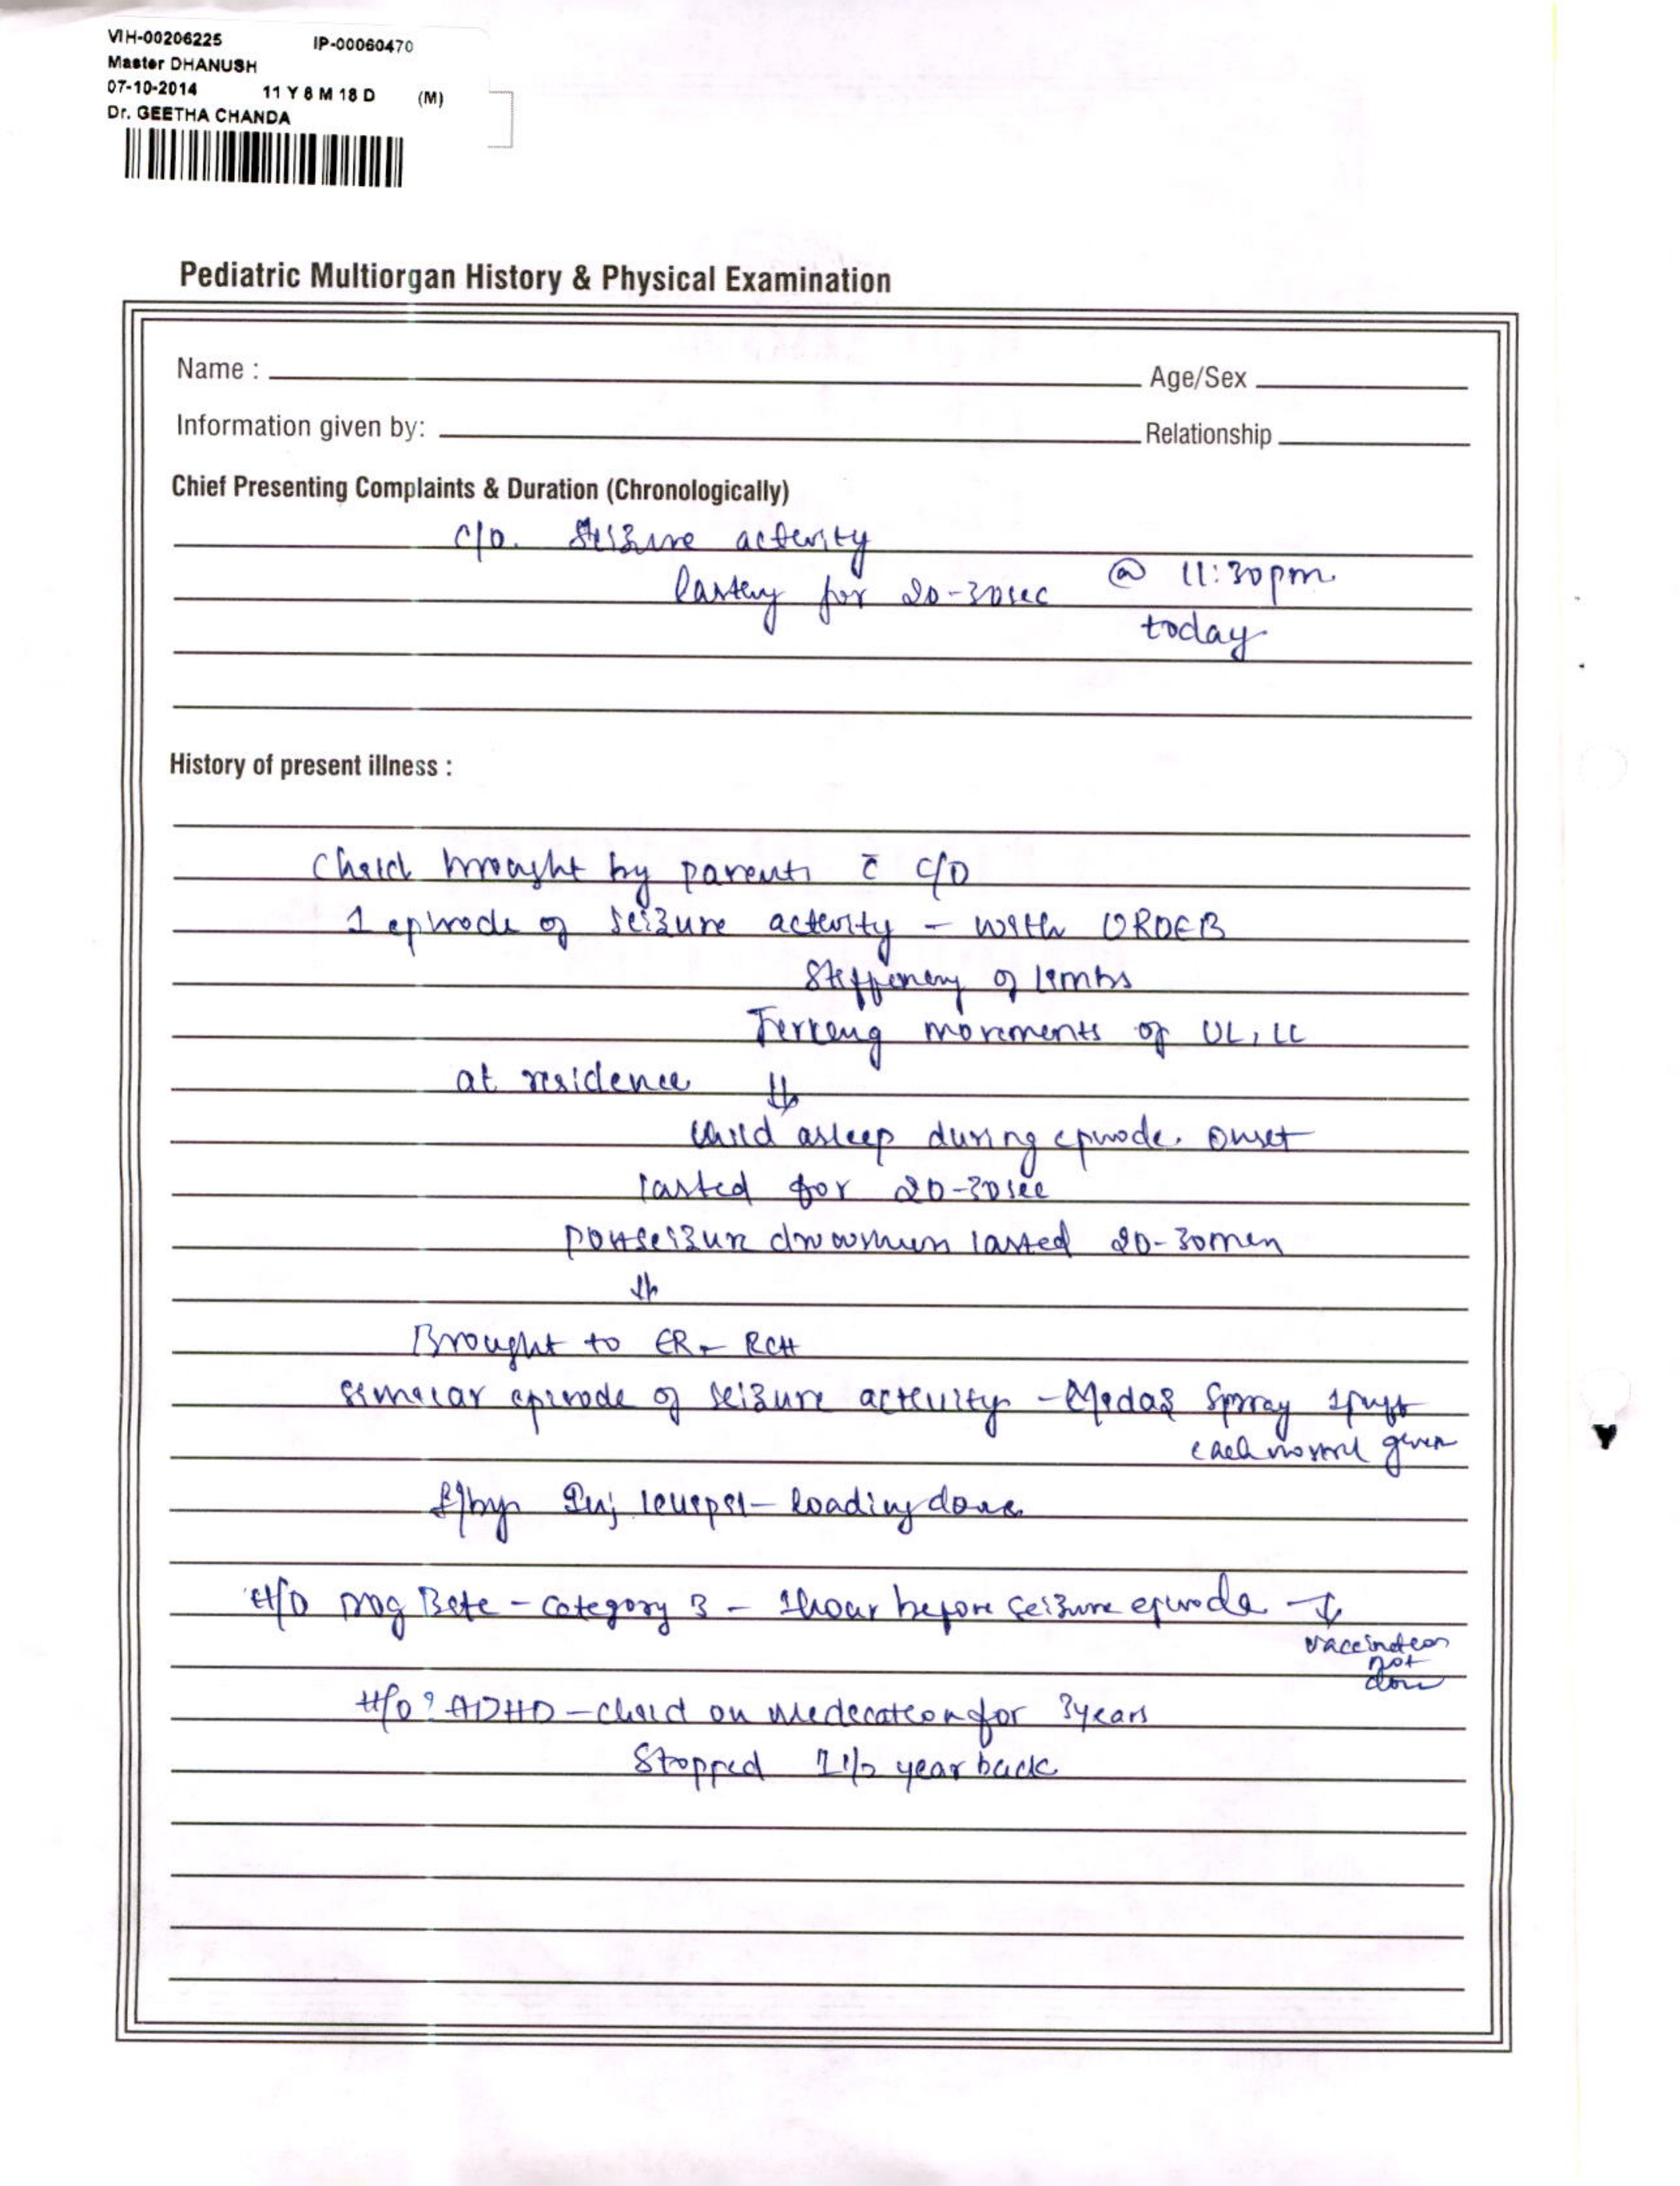 VIH-00206225 IP-00060470
Master DHANUSH
07-10-2014 11 Y 8 M 18 D (M)
Dr. GEETHA CHANDA
Pediatric Multiorgan History & Physical Examination
Name : Age/Sex
Information given by: Relationship
Chief Presenting Complaints & Duration (Chronologically)
c/o. Seizure activity
lasting for 20-30sec @ 11:30pm
today
History of present illness :
Child brought by parents c̄ c/o
1 episode of seizure activity - with UROEB
Stiffening of limbs
Jerking movements of UL, LL
at residence ↓
child asleep during episode onset
lasted for 20-30sec
postseizure drowsiness lasted 20-30min
↓
Brought to ER - RCH
similar episode of seizure activity - Midaz Spray 1puff
each nostril given
f/by Inj levipil - loading done
H/O Dog Bite - category 3 - 1hour before seizure episode - ↓
vaccination
not
done
H/O ? ADHD - child on medication for 3years
Stopped 1 1/2 year back